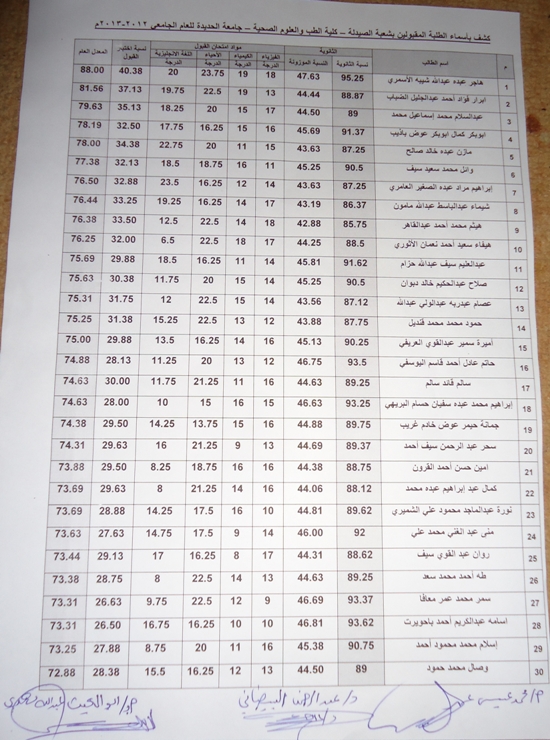 كشف بأسماء الطلبة المقبولين بشعبة الصيدلة - كلية الطب والعلوم الصحية - جامعة الحديدة للعام الجامعي ٢٠١٢-٢٠١٣م
م اسم الطالب الثانوية مواد امتحان القبول نسبة اختبار القبول المعدل العام
نسبة الثانوية النسبة الموزونة الفيزياء الكيمياء الأحياء اللغة الأنجليزية
الدرجة الدرجة الدرجة الدرجة
1 هاجر عبده عبدالله شيبه الأسمري 95.25 47.63 18 19 23.75 20 40.38 88.00
2 ابرار فؤاد أحمد عبدالجليل الضباب 88.87 44.44 13 19 22.5 19.75 37.13 81.56
3 عبدالسلام محمد إسماعيل محمد 89 44.50 17 15 20 18.25 35.13 79.63
4 ابوبكر كمال ابوبكر عوض باذيب 91.37 45.69 16 15 16.25 17.75 32.50 78.19
5 مازن عبده خالد صالح 87.25 43.63 15 11 20 22.75 34.38 78.00
6 وائل محمد سعيد سيف 90.5 45.25 11 16 18.75 18.5 32.13 77.38
7 إبراهيم مراد عبده الصغير العامري 87.25 43.63 14 12 16.25 23.5 32.88 76.50
8 شيماء عبدالباسط عبدالله مامون 86.37 43.19 17 14 16.25 19.25 33.25 76.44
9 هيثم محمد أحمد عبدالقاهر 85.75 42.88 18 14 22.5 12.5 33.50 76.38
10 هيفاء سعيد أحمد نعمان الأثوري 88.5 44.25 17 18 22.5 6.5 32.00 76.25
11 عبدالعليم سيف عبدالله حزام 91.62 45.81 14 11 16.25 18.5 29.88 75.69
12 صلاح عبدالحكيم خالد دبوان 90.5 45.25 14 15 20 11.75 30.38 75.63
13 عصام عبدربه عبدالولي عبدالله 87.12 43.56 14 15 22.5 12 31.75 75.31
14 حمود محمد محمد قنديل 87.75 43.88 12 13 22.5 15.25 31.38 75.25
15 أميرة سمير عبدالقوي العريفي 90.25 45.13 16 14 16.25 13.5 29.88 75.00
16 حاتم عادل أحمد قاسم اليوسفي 93.5 46.75 12 13 20 11.25 28.13 74.88
17 سالم قائد سالم 89.25 44.63 16 11 21.25 11.75 30.00 74.63
18 إبراهيم محمد عبده سفيان حسام البريهي 93.25 46.63 16 15 15 10 28.00 74.63
19 جمانة حيمر عوض خادم غريب 89.75 44.88 16 15 13.75 14.25 29.50 74.38
20 سحر عبد الرحمن سيف أحمد 89.37 44.69 13 9 21.25 16 29.63 74.31
21 امين حسن أحمد القرون 88.75 44.38 16 16 18.75 8.25 29.50 73.88
22 كمال عبد إبراهيم عبده محمد 88.12 44.06 16 14 21.25 8 29.63 73.69
23 نورة عبدالماجد محمود علي الشميري 89.62 44.81 10 16 17.5 14.25 28.88 73.69
24 منى عبد الغني محمد علي 92 46.00 14 9 17.5 14.75 27.63 73.63
25 روان عبد القوي سيف 88.62 44.31 17 8 16.25 17 29.13 73.44
26 طه أحمد محمد سعد 89.25 44.63 13 14 22.5 8 28.75 73.38
27 سمر محمد عمر معافا 93.37 46.69 9 12 22.5 9.75 26.63 73.31
28 اسامه عبدالكريم أحمد 93.62 46.81 10 10 16.25 16.75 26.50 73.31
29 إسلام محمد محمود أحمد 90.75 45.38 16 11 20 8.75 27.88 73.25
30 وصال محمد حمود 89 44.50 13 12 16.25 15.5 28.38 72.88